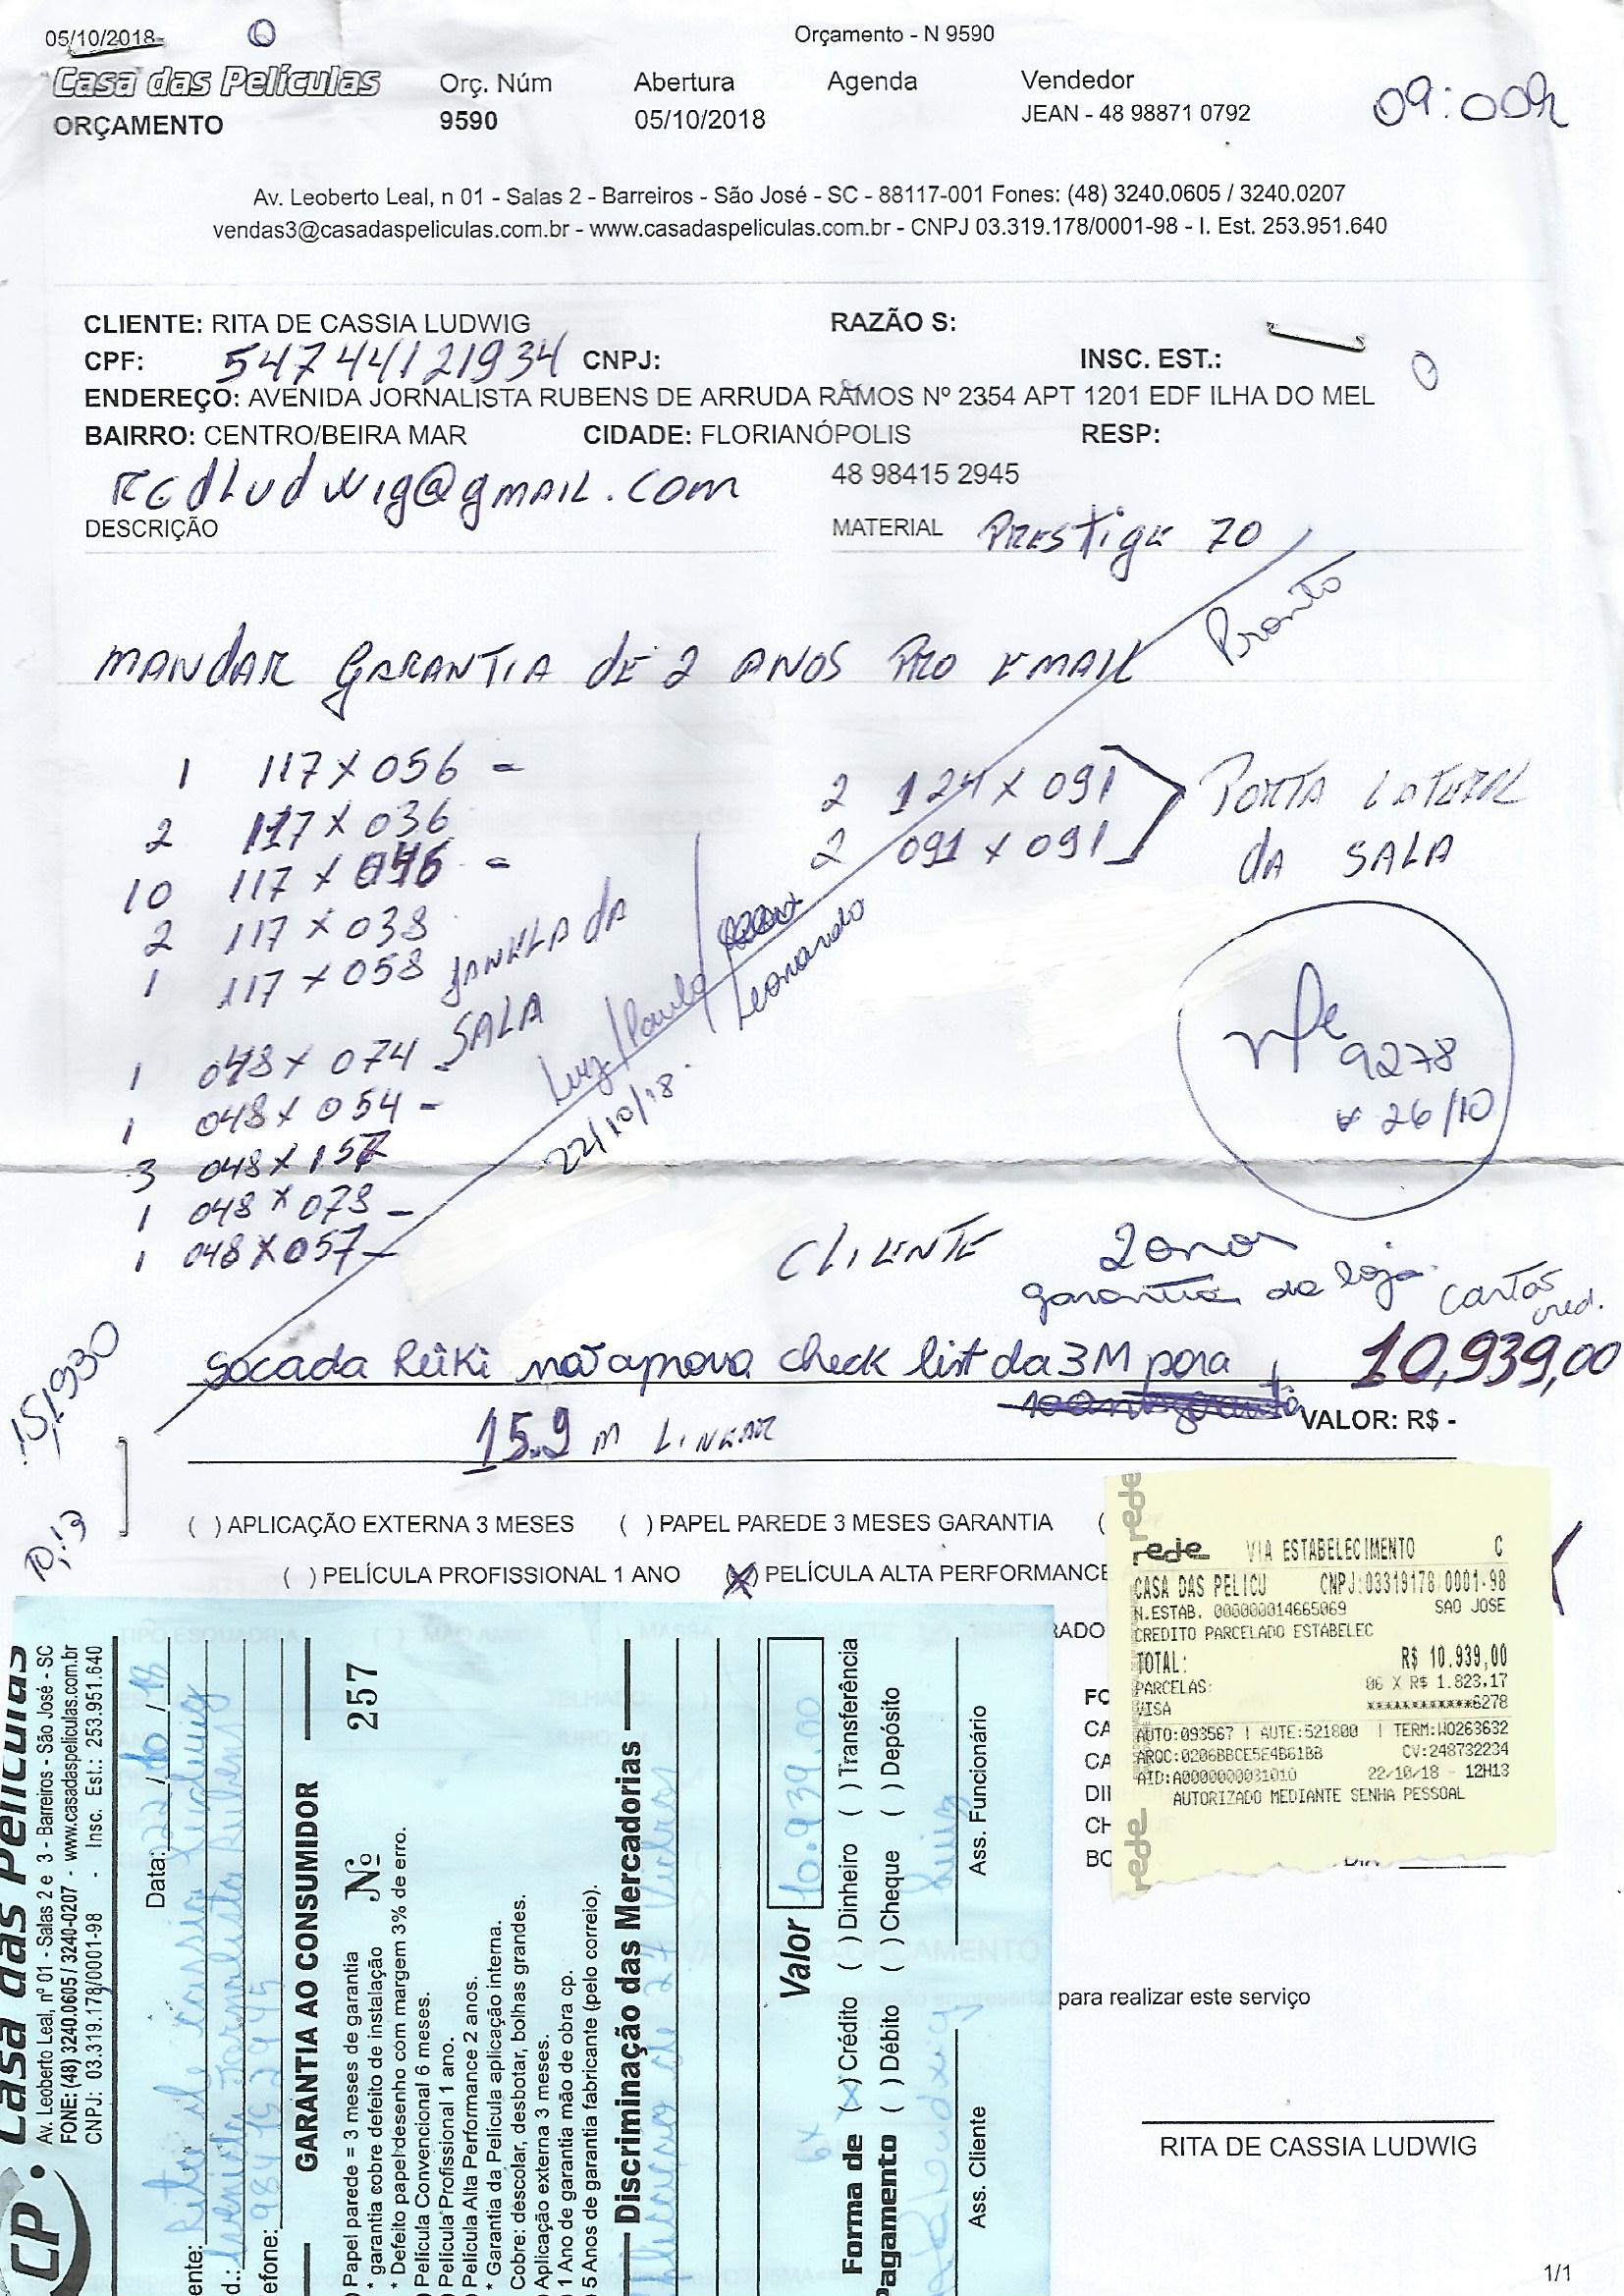 05/10/2018
Orçamento - N 9590
Casa das Películas
ORÇAMENTO
Orç. Núm
9590
Abertura
05/10/2018
Agenda
Vendedor
JEAN - 48 98871 0792
09:00h
Av. Leoberto Leal, n 01 - Salas 2 - Barreiros - São José - SC - 88117-001 Fones: (48) 3240.0605 / 3240.0207
vendas3@casadaspeliculas.com.br - www.casadaspeliculas.com.br - CNPJ 03.319.178/0001-98 - I. Est. 253.951.640
CLIENTE: RITA DE CASSIA LUDWIG RAZÃO S:
CPF: 54744121934 CNPJ: INSC. EST.:
ENDEREÇO: AVENIDA JORNALISTA RUBENS DE ARRUDA RAMOS Nº 2354 APT 1201 EDF ILHA DO MEL
BAIRRO: CENTRO/BEIRA MAR CIDADE: FLORIANÓPOLIS RESP:
RCdLudwig@gmail.com 48 98415 2945
DESCRIÇÃO MATERIAL Prestige 70
Pronto
MANDAR GARANTIA DE 2 ANOS PRO EMAIL
1 117 x 056 -
2 117 x 036
10 117 x 046 -
2 117 x 038
1 117 x 058 JANELA DA
SALA
1 048 x 074 -
1 048 x 054 -
3 048 x 157
1 048 x 073 -
1 048 x 057 -
2 124 x 091
2 091 x 091
PORTA LATERAL
DA SALA
Luiz / Paulo /
Leonardo
22/10/18.
nfe
9278
26/10
CLIENTE 2 anos
garantia da loja.
Cartão
cred.
Sacada Reiki não aprova check list da 3M para
10,939,00
VALOR: R$ -
15.9 m LINEAR
15,930
10,13
( ) APLICAÇÃO EXTERNA 3 MESES ( ) PAPEL PAREDE 3 MESES GARANTIA (
( ) PELÍCULA PROFISSIONAL 1 ANO (X) PELÍCULA ALTA PERFORMANCE
RADO
FO
CA
CA
DI
CH
BO
rede VIA ESTABELECIMENTO C
CASA DAS PELICU CNPJ:03319178/0001-98
N.ESTAB. 000000014665069 SAO JOSE
CREDITO PARCELADO ESTABELEC
TOTAL: R$ 10.939,00
PARCELAS: 06 X R$ 1.823,17
VISA ************6278
AUTO:093567 | AUTE:521800 | TERM:WO263632
AROC:0206BBCE5E4B61BB CV:248732234
AID:A0000000031010 22/10/18 - 12H13
AUTORIZADO MEDIANTE SENHA PESSOAL
rede
rede
rede
para realizar este serviço
RITA DE CASSIA LUDWIG
1/1
CP. Casa das Películas
Av. Leoberto Leal, nº 01 - Salas 2 e 3 - Barreiros - São José - SC
FONE: (48) 3240.0605 / 3240-0207 - www.casadaspeliculas.com.br
CNPJ: 03.319.178/0001-98 - Insc. Est.: 253.951.640
Data: 22/10/18
ente: Rita de Cassia Ludwig
d.: Avenida Jornalista Rubens
efone: 984152945
GARANTIA AO CONSUMIDOR
Nº 257
) Papel parede = 3 meses de garantia
* garantia cobre defeito de instalação
* Defeito papel desenho com margem 3% de erro.
) Película Convencional 6 meses.
) Película Profissional 1 ano.
) Película Alta Performance 2 anos.
* Garantia da Película aplicação interna.
Cobre: descolar, desbotar, bolhas grandes.
) Aplicação externa 3 meses.
) 1 Ano de garantia mão de obra cp.
) 5 Anos de garantia fabricante (pelo correio).
Discriminação das Mercadorias
de 24 vidros
Valor 10.939,00
6x
Forma de Pagamento
(x) Crédito ( ) Dinheiro ( ) Transferência
( ) Débito ( ) Cheque ( ) Depósito
Luiz
Ass. Cliente Ass. Funcionário